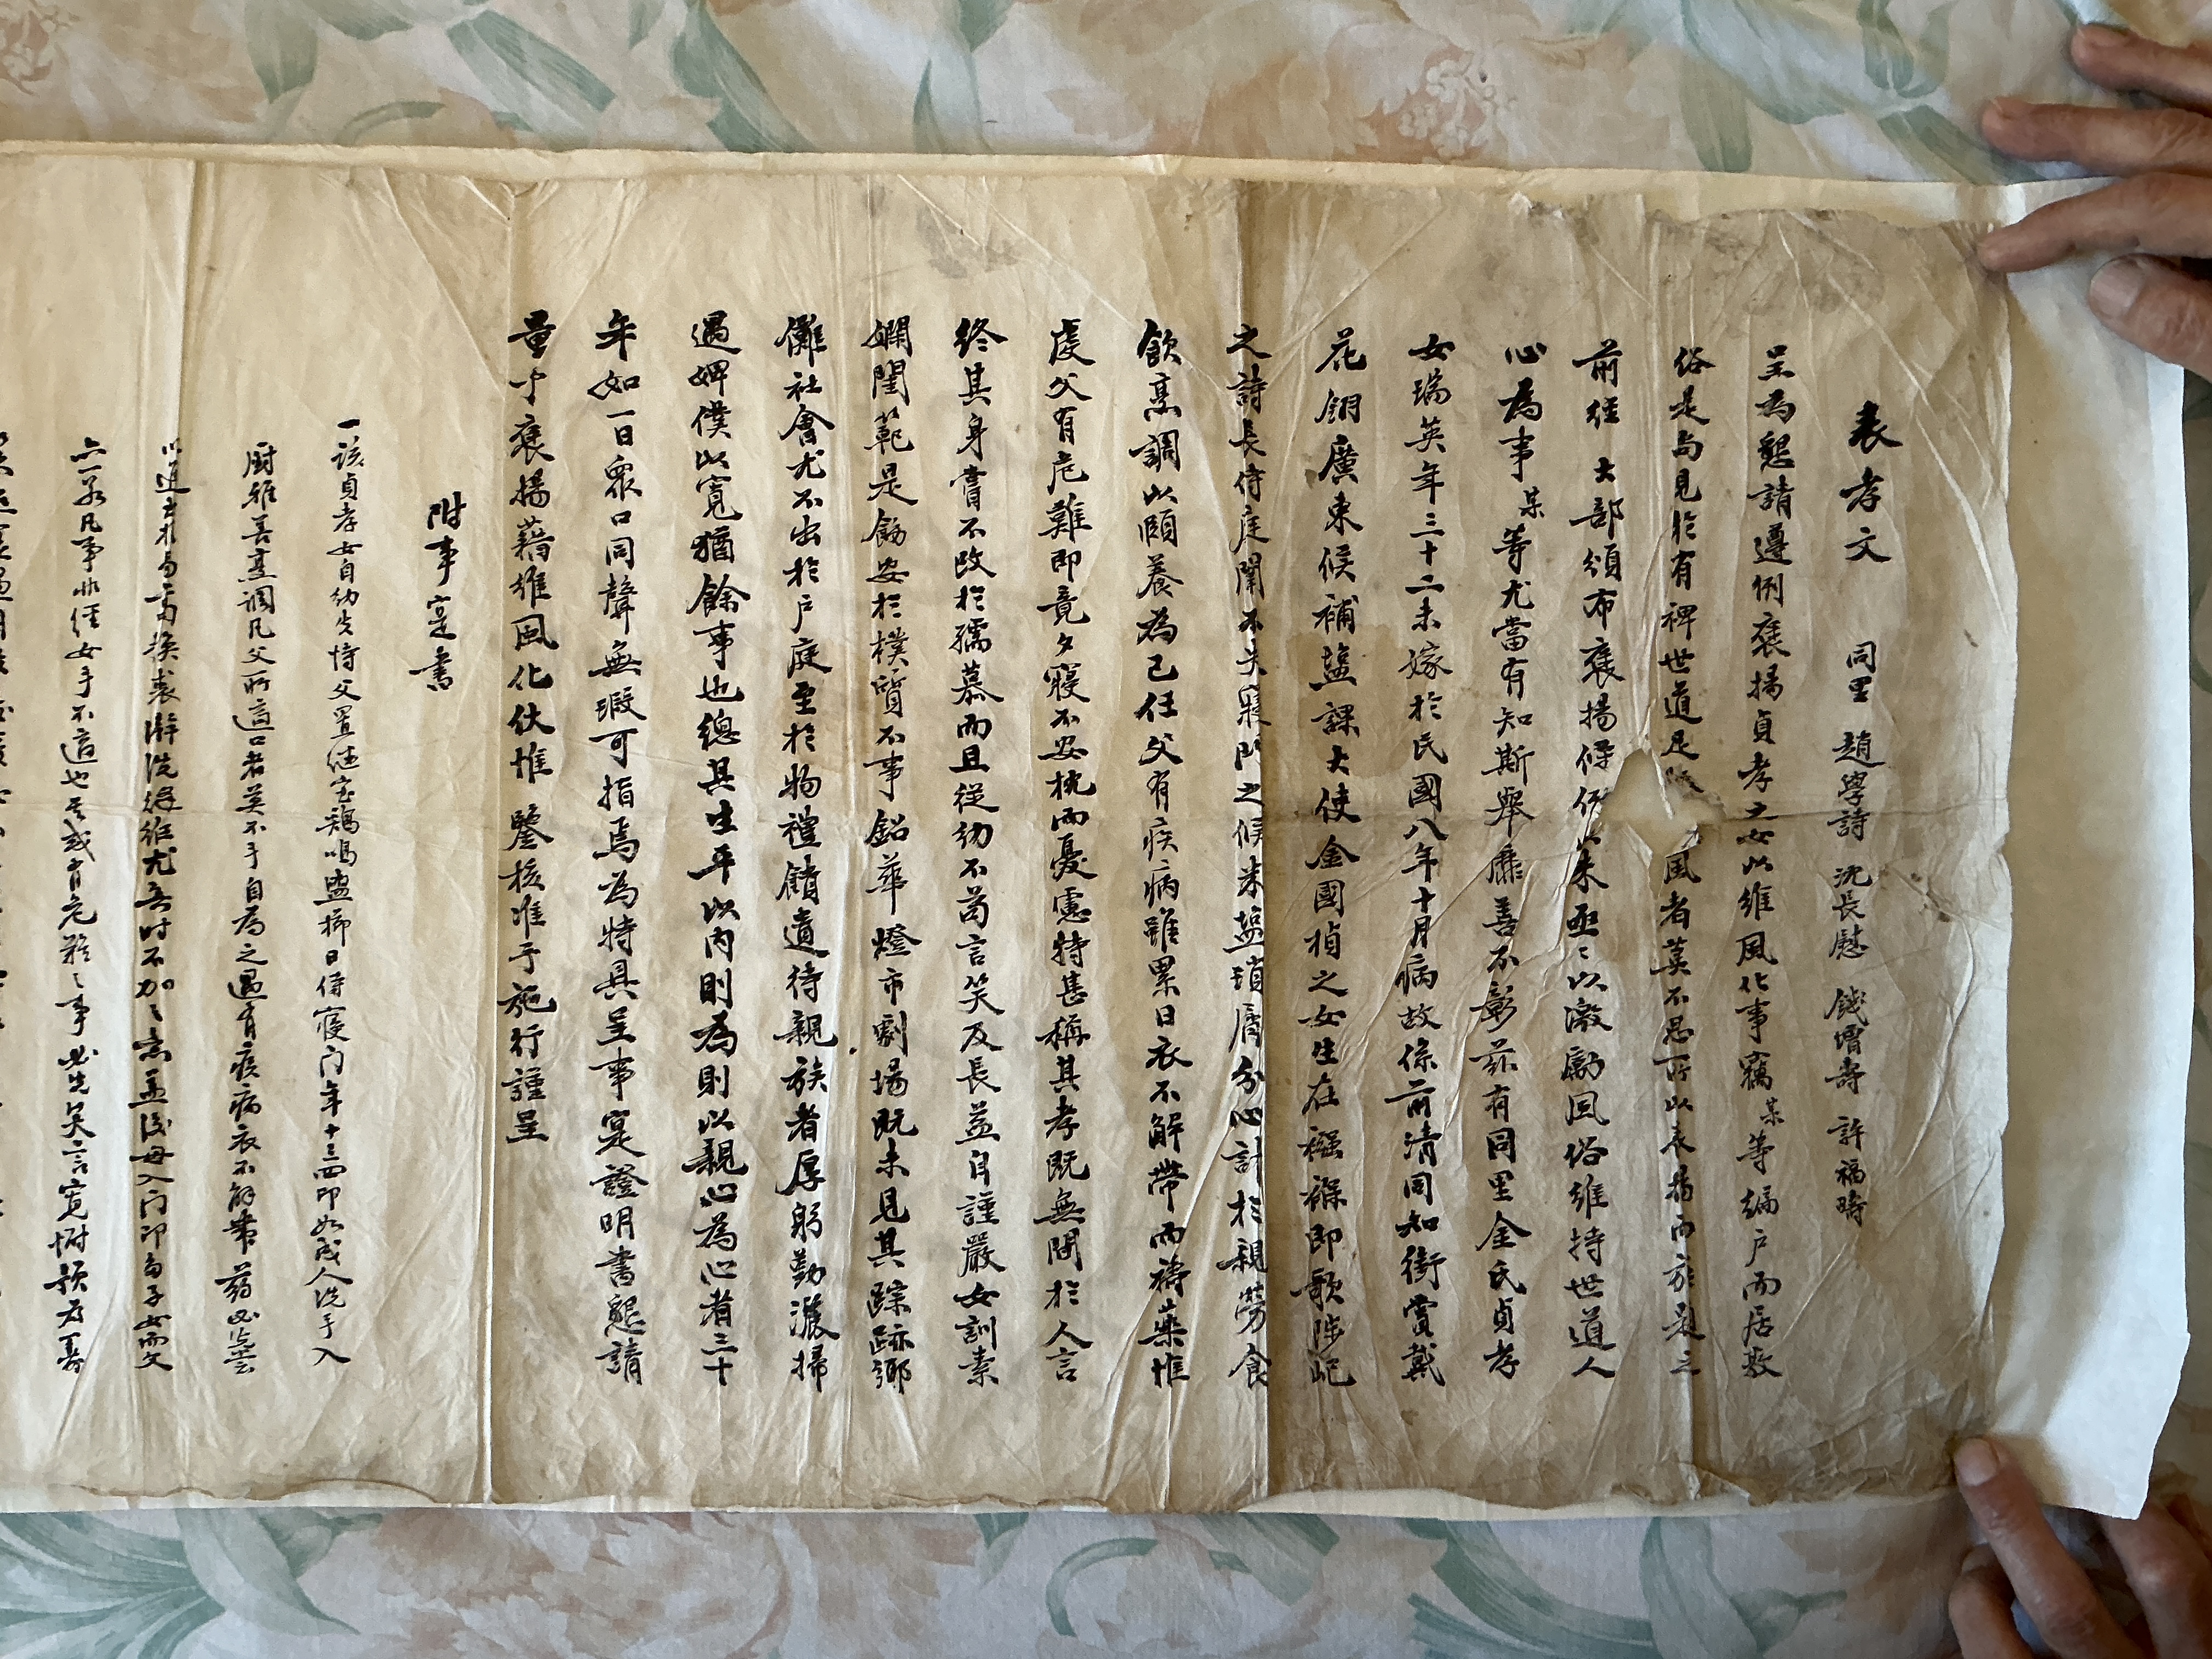 表孝文
同里 趙學詩 沈長慰 錢增壽 許福疇
呈為懇請遵例褒揚貞孝之女以維風化事竊某等編戶而居敦
俗是尚見於有裨世道足 風者莫不思所以表揚而於是之
前經 大部頒布褒揚條例以來亟亟以激勵風俗維持世道人
心為事某等尤當有知斯舉靡善不彰茲有同里金氏貞孝
女瑞英年三十二未嫁於民國八年十月病故係前清同知銜賞戴
花翎廣東候補鹽課大使金國楨之女生在襁褓即歌陟屺
之詩長侍庭闈不失寢門之候米鹽瑣屑分心計於親勞食
飲烹調以頤養為己任父有疾病雖累日衣不解帶而禱藥惟
虔父有危難即竟夕寢不安枕而憂慮特甚稱其孝既無間於人言
終其身嘗不改於孺慕而且從幼不苟言笑及長益自謹嚴女訓素
嫻閨範是飭安於樸質不事鉛華燈市劇場既未見其踪跡鄉
儺社會尤不出於戶庭至於物禮饋遺待親族者厚躬勤灑掃
遇婢僕以寬猶餘事也總其生平以內則為則以親心為心者三十
年如一日眾口同聲無瑕可指焉為特具呈事寔證明書懇請
量予褒揚藉維風化伏惟 鑒核准予施行謹呈
附事寔書
一該貞孝女自幼失恃父置繼室鷄鳴盥櫛日侍寢门年十三四即如成人洗手入
厨雅善烹調凡父所適口者莫不手自為之遇有疾病衣不解帶葯必嘗
以進 易 換裘澣洗綴維尤無時不加之意孟後母入门即自子女而文
亡一家凡事非經女手不適也 或有危難之事必先笑言寬慰預为籌